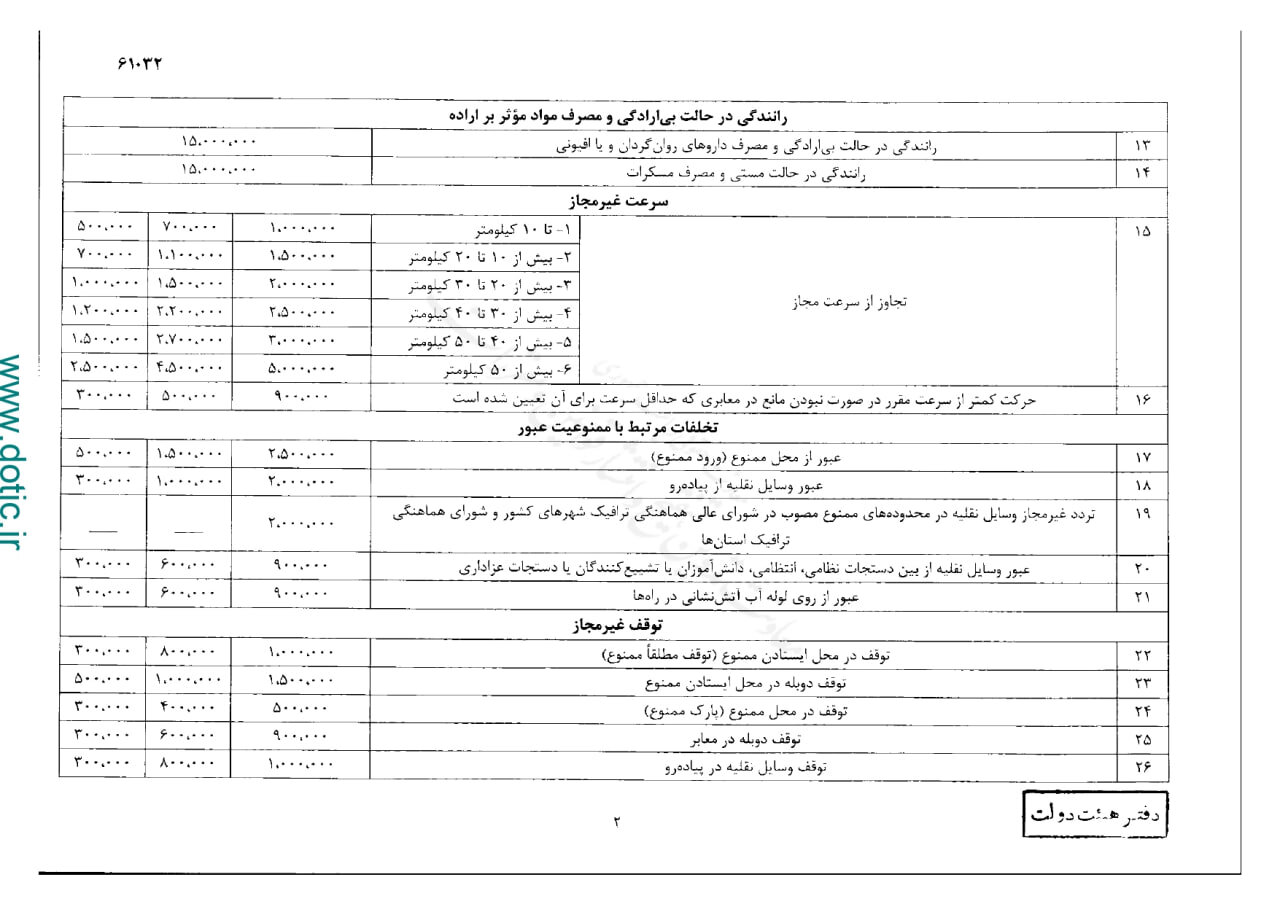 ۶۱۰۳۲
رانندگی در حالت بی‌ارادگی و مصرف مواد مؤثر بر اراده
۱۳ رانندگی در حالت بی‌ارادگی و مصرف داروهای روان‌گردان و یا افیونی ۱۵،۰۰۰،۰۰۰
۱۴ رانندگی در حالت مستی و مصرف مسکرات ۱۵،۰۰۰،۰۰۰
سرعت غیرمجاز
۱۵ ۱- تا ۱۰ کیلومتر ۱،۰۰۰،۰۰۰ ۷۰۰،۰۰۰ ۵۰۰،۰۰۰
۲- بیش از ۱۰ تا ۲۰ کیلومتر ۱،۵۰۰،۰۰۰ ۱،۱۰۰،۰۰۰ ۷۰۰،۰۰۰
۳- بیش از ۲۰ تا ۳۰ کیلومتر ۲،۰۰۰،۰۰۰ ۱،۵۰۰،۰۰۰ ۱،۰۰۰،۰۰۰
تجاوز از سرعت مجاز
۴- بیش از ۳۰ تا ۴۰ کیلومتر ۲،۵۰۰،۰۰۰ ۲،۲۰۰،۰۰۰ ۱،۲۰۰،۰۰۰
۵- بیش از ۴۰ تا ۵۰ کیلومتر ۳،۰۰۰،۰۰۰ ۲،۷۰۰،۰۰۰ ۱،۵۰۰،۰۰۰
۶- بیش از ۵۰ کیلومتر ۵،۰۰۰،۰۰۰ ۴،۵۰۰،۰۰۰ ۲،۵۰۰،۰۰۰
۱۶ حرکت کمتر از سرعت مقرر در صورت نبودن مانع در معابری که حداقل سرعت برای آن تعیین شده است ۹۰۰،۰۰۰ ۵۰۰،۰۰۰ ۳۰۰،۰۰۰
تخلفات مرتبط با ممنوعیت عبور
۱۷ عبور از محل ممنوع (ورود ممنوع) ۲،۵۰۰،۰۰۰ ۱،۵۰۰،۰۰۰ ۵۰۰،۰۰۰
۱۸ عبور وسایل نقلیه از پیاده‌رو ۲،۰۰۰،۰۰۰ ۱،۰۰۰،۰۰۰ ۳۰۰،۰۰۰
۱۹ تردد غیرمجاز وسایل نقلیه در محدوده‌های ممنوع مصوب در شورای عالی هماهنگی ترافیک شهرهای کشور و شورای هماهنگی ۲،۰۰۰،۰۰۰ — —
ترافیک استان‌ها
۲۰ عبور وسایل نقلیه از بین دستجات نظامی، انتظامی، دانش‌آموزان یا تشییع‌کنندگان یا دستجات عزاداری ۹۰۰،۰۰۰ ۶۰۰،۰۰۰ ۳۰۰،۰۰۰
۲۱ عبور از روی لوله آب آتش‌نشانی در راه‌ها ۹۰۰،۰۰۰ ۶۰۰،۰۰۰ ۳۰۰،۰۰۰
توقف غیرمجاز
۲۲ توقف در محل ایستادن ممنوع (توقف مطلقاً ممنوع) ۱،۰۰۰،۰۰۰ ۸۰۰،۰۰۰ ۳۰۰،۰۰۰
۲۳ توقف دوبله در محل ایستادن ممنوع ۱،۵۰۰،۰۰۰ ۱،۰۰۰،۰۰۰ ۵۰۰،۰۰۰
۲۴ توقف در محل ممنوع (پارک ممنوع) ۵۰۰،۰۰۰ ۴۰۰،۰۰۰ ۳۰۰،۰۰۰
۲۵ توقف دوبله در معابر ۹۰۰،۰۰۰ ۶۰۰،۰۰۰ ۳۰۰،۰۰۰
۲۶ توقف وسایل نقلیه در پیاده‌رو ۱،۰۰۰،۰۰۰ ۸۰۰،۰۰۰ ۳۰۰،۰۰۰
دفتر هیئت دولت
۲
www.dotic.ir